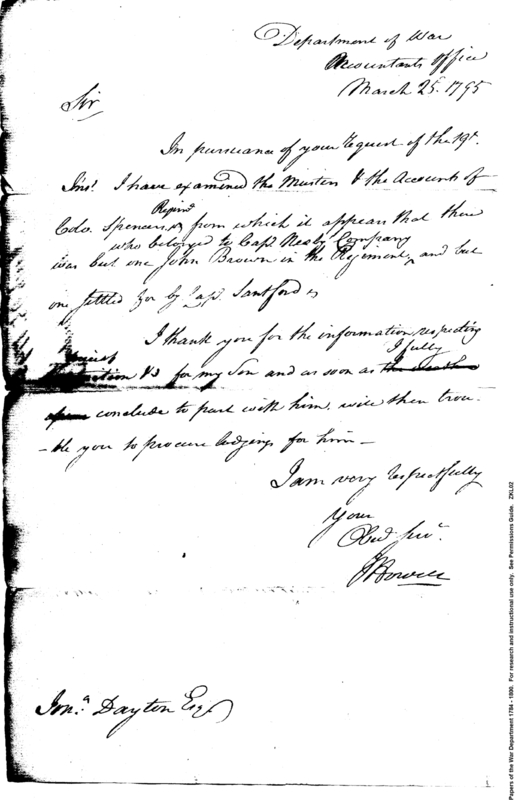 Department of War
Accountants Office
March 25. 1795
Sir
In pursuance of your request of the 19t.
Inst. I have examined the Musters & the Accounts of
Regimt
Colo. Spencers, from which it appears that there
who belonged to Capt Company
was but one John Brown in the Regiment, and but
one settled for by Capt. Santford
I thank you for the information respecting
I fully
&c for my Son and as soon as
conclude to part with him, will then trou-
-ble you to procure lodgings for him -
I am very respectfully
Your
Obed Servt.
J Howell
Jona. Dayton Esqr
Papers of the War Department 1784 - 1800. For research and instructional use only. See Permissions Guide. ZKL02